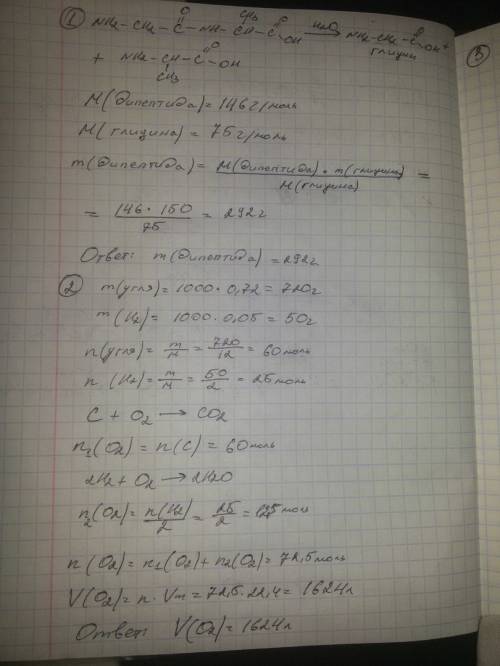 ① NH₂-CH₂-C(=O)-NH-CH(CH₃)-C(=O)-OH →(H₂O) NH₂-CH₂-C(=O)-OH +
глицин
+ NH₂-CH(CH₃)-C(=O)-OH
③
M(дипептида) = 146 г/моль
M(глицина) = 75 г/моль
m(дипептида) = M(дипептида) · m(глицина) / M(глицина) =
= 146 · 150 / 75 = 292 г
Ответ: m(дипептида) = 292 г
② m(угля) = 1000 · 0,72 = 720 г
m(H₂) = 1000 · 0,05 = 50 г
n(угля) = m/M = 720/12 = 60 моль
n(H₂) = m/M = 50/2 = 25 моль
C + O₂ → CO₂
n₁(O₂) = n(C) = 60 моль
2H₂ + O₂ → 2H₂O
n₂(O₂) = n(H₂)/2 = 25/2 = 12,5 моль
n(O₂) = n₁(O₂) + n₂(O₂) = 72,5 моль
V(O₂) = n · Vm = 72,5 · 22,4 = 1624 л
Ответ: V(O₂) = 1624 л